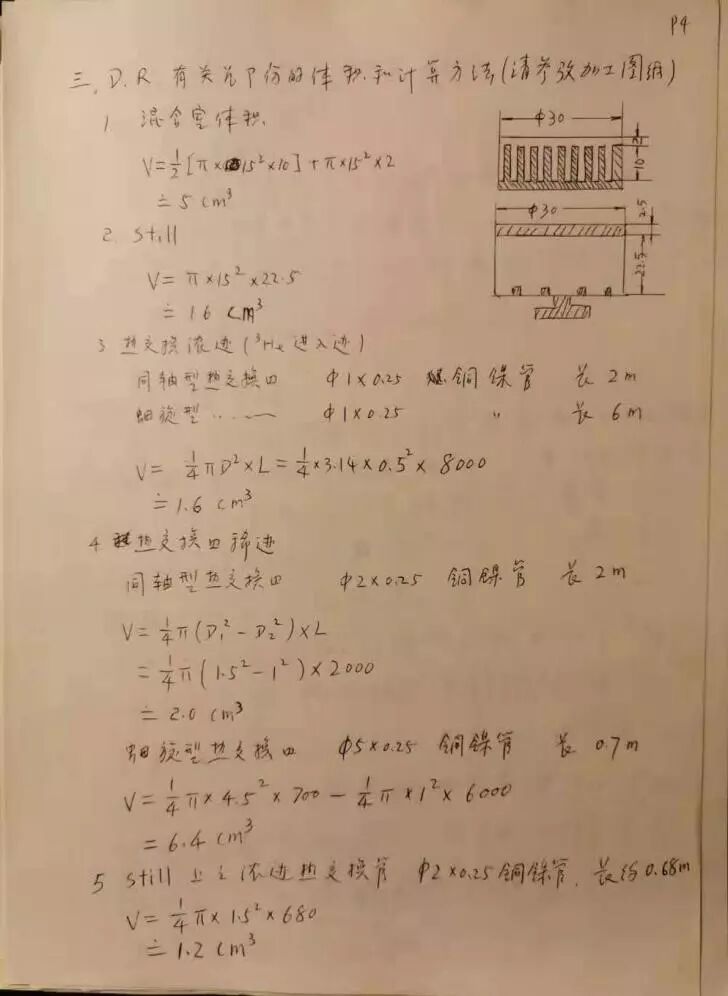 P4
三、D.R 有关各部份的体积和计算方法(请参考加工图纸)
1 混合室体积
V=½[π×15²×10]+π×15²×2
≐5 cm³
Φ30
2
10
Φ30
2.5
22.5
2. Still
V= π×15²×22.5
≐16 cm³
3 热交换浓边(³He进入边)
同轴型热交换口 Φ1×0.25 铜镍管 长 2m
Φ1×0.25 〃 长 6m
V= ¼πD²×L=¼×3.14×0.5²×8000
≐1.6 cm³
4 热交换口稀边
同轴型热交换口 Φ2×0.25 铜镍管 长 2m
V=¼π(D₁²-D₂²)×L
=¼π(1.5²-1²)×2000
≐2.0 cm³
型热交换口 Φ5×0.25 铜镍管 长 0.7m
V=¼π×4.5²×700-¼π×1²×6000
=6.4 cm³
5 Still 上之浓边热交换管 Φ2×0.25铜镍管,长约0.68m
V=¼π×1.5²×680
≐1.2 cm³